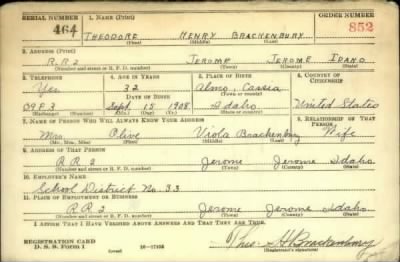 SERIAL NUMBER 1. NAME (Print) ORDER NUMBER
464 THEODORE HENRY BRACKENBURY 852
(First) (Middle) (Last)
2. ADDRESS (Print)
R.R.2 JEROME JEROME IDAHO
(Number and street or R. F. D. number) (Town) (County) (State)
3. TELEPHONE 4. AGE IN YEARS 5. PLACE OF BIRTH 6. COUNTRY OF CITIZENSHIP
Yes 32 Almo, Cassia
DATE OF BIRTH (Town or county)
Sept. 15 1908 Idaho United States
(Exchange) (Number) (Mo.) (Day) (Yr.) (State or country)
7. NAME OF PERSON WHO WILL ALWAYS KNOW YOUR ADDRESS 8. RELATIONSHIP OF THAT PERSON
Mrs. Olive Viola Brackenbury Wife
(Mr., Mrs., Miss) (First) (Middle) (Last)
9. ADDRESS OF THAT PERSON
R.R.2 Jerome Jerome Idaho
(Number and street or R. F. D. number) (Town) (County) (State)
10. EMPLOYER'S NAME
School District No. 33
11. PLACE OF EMPLOYMENT OR BUSINESS
R.R.2 Jerome Jerome Idaho
(Number and street or R. F. D. number) (Town) (County) (State)
I AFFIRM THAT I HAVE VERIFIED ABOVE ANSWERS AND THAT THEY ARE TRUE.
REGISTRATION CARD
D. S. S. Form 1
Theo. H. Brackenbury
(Registrant's signature)